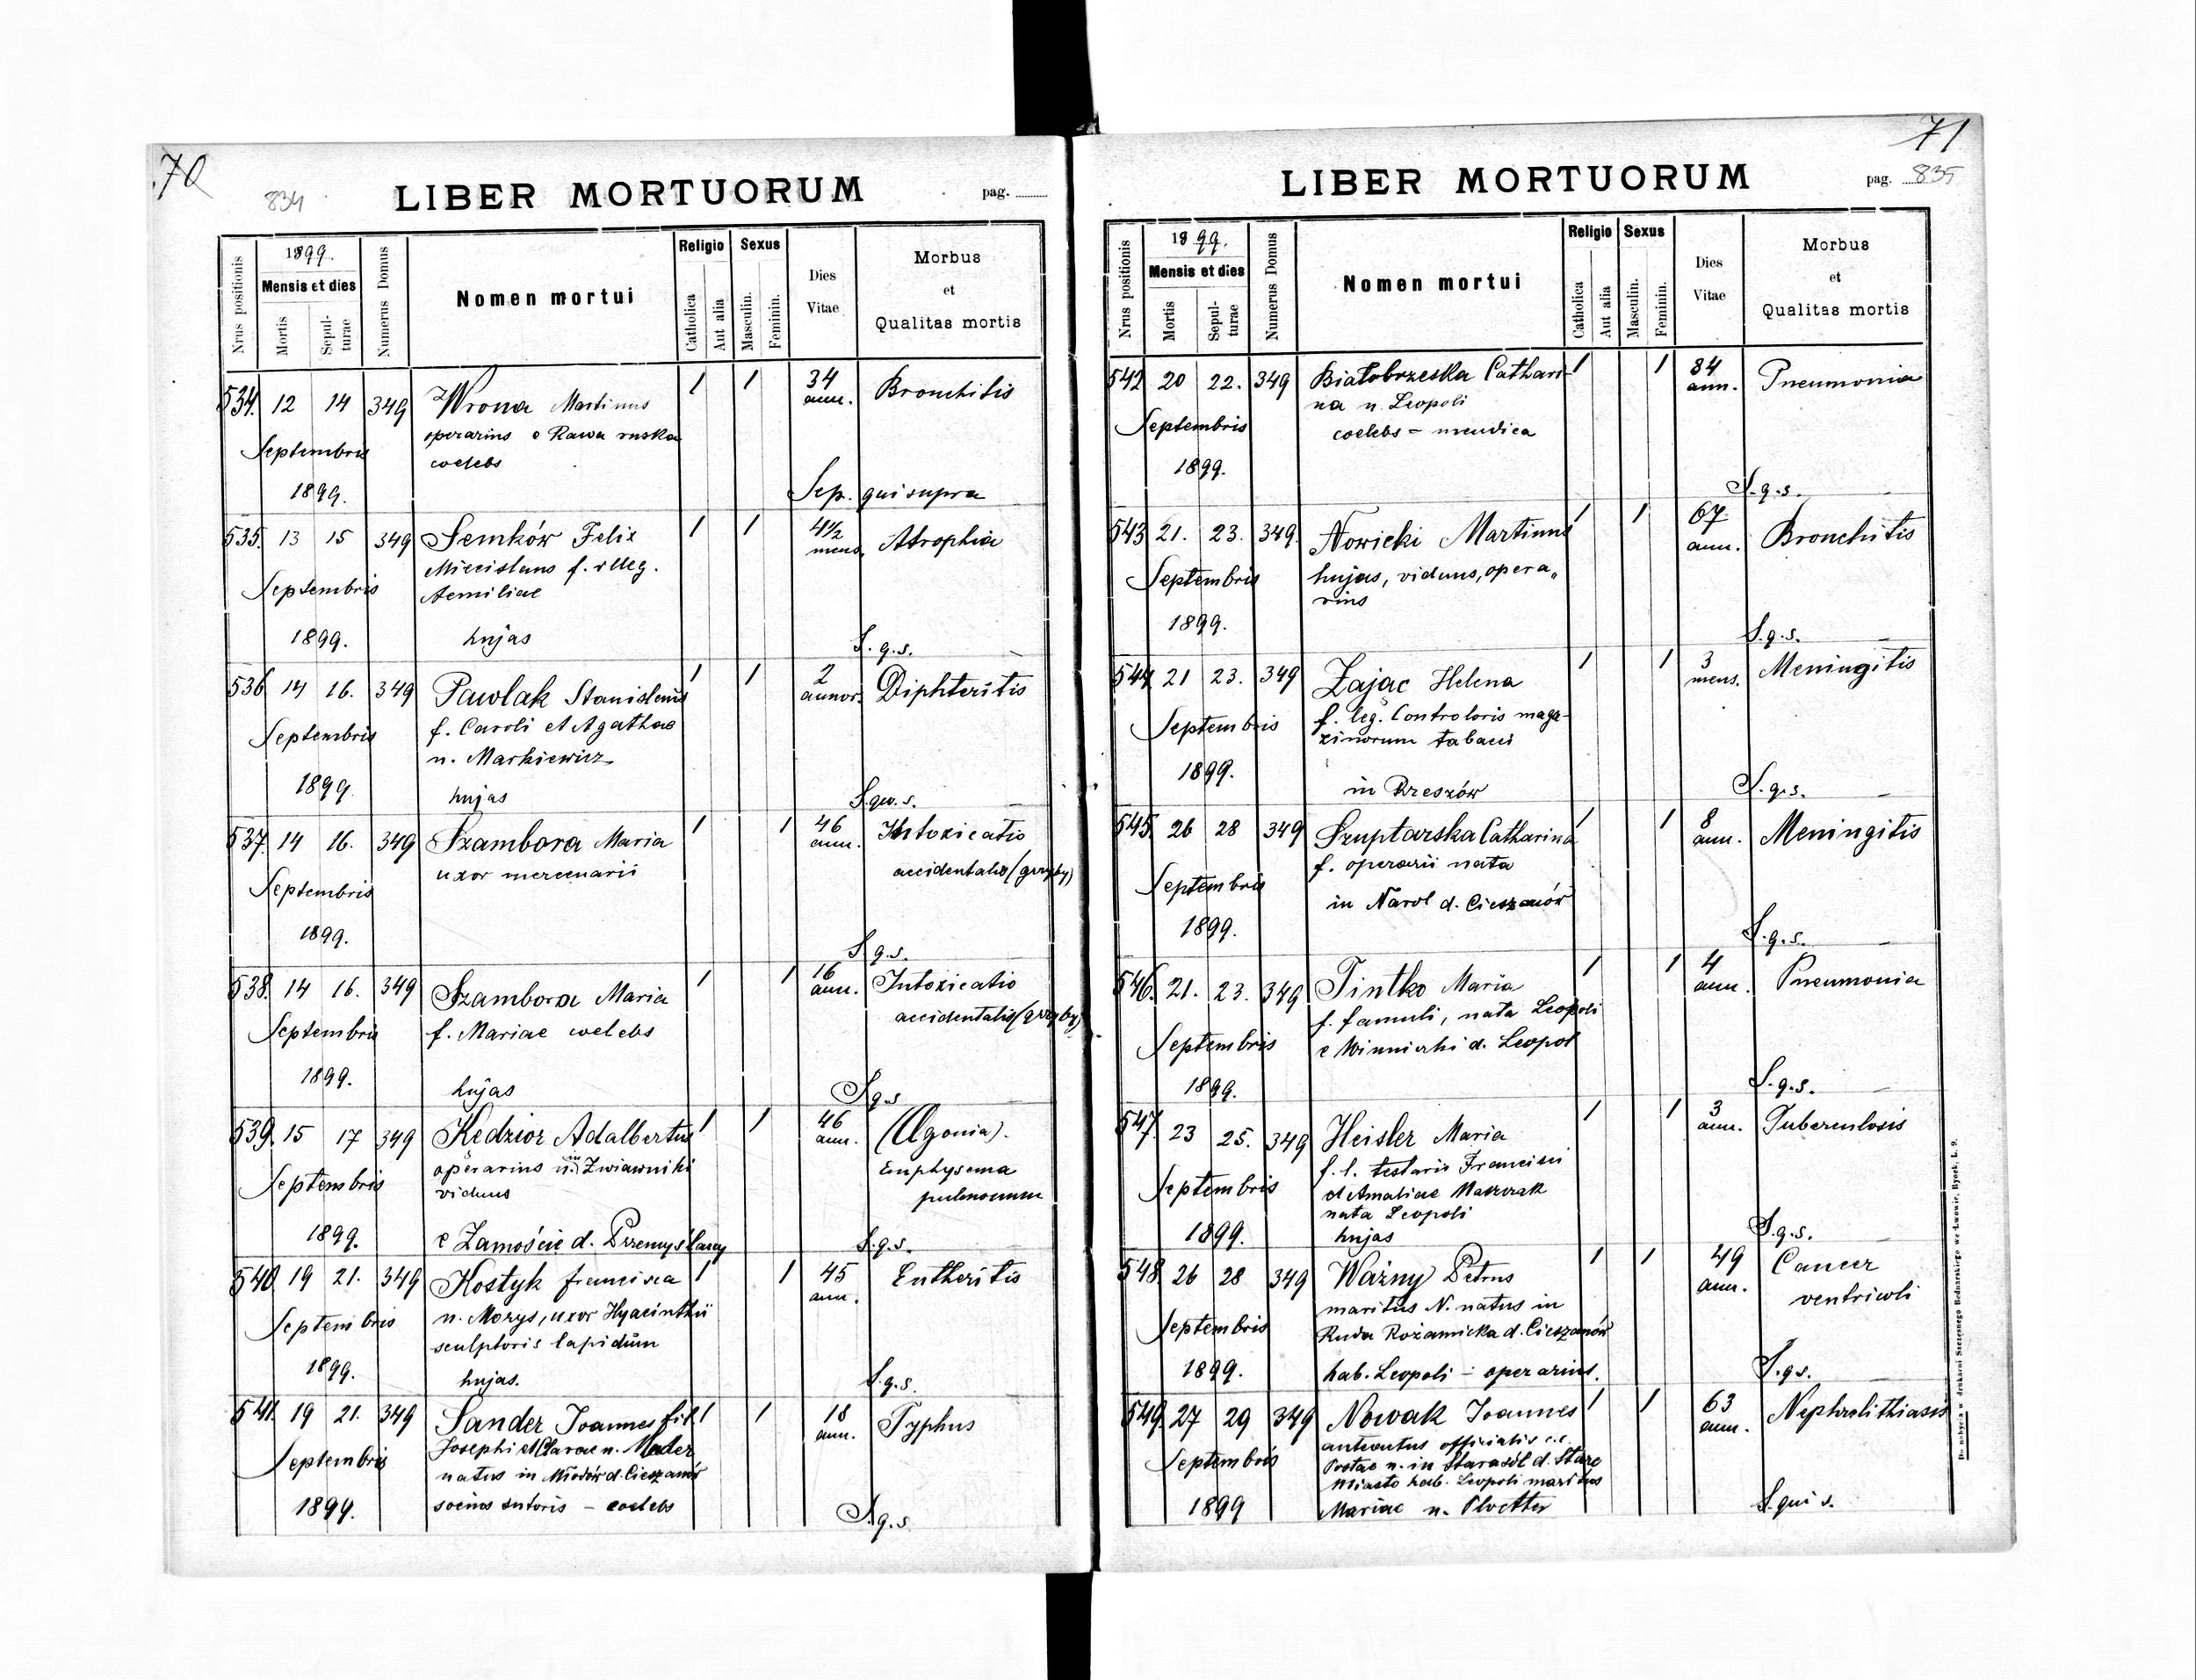 70
834
LIBER MORTUORUM
pag.
Nrus positionis
1899.
Mensis et dies
Mortis
Sepulturae
Numerus Domus
Nomen mortui
Religio
Catholica
Aut alia
Sexus
Masculin.
Feminin.
Dies Vitae
Morbus
et
Qualitas mortis
534. 12 14 349 Wrona Martinus 1 1 34 ann. Bronchitis
operarius e Rawa ruska
Septembris
coelebs
1899. Sep. qui supra
535. 13 15 349 Semków Felix 1 1 4 1/2 mens. Atrophia
Miecislaus f. illeg.
Septembris Aemiliae
1899. hujas S. q. s.
536 14 16. 349 Pawlak Stanislaus 1 1 2 annor. Diphteritis
Septembris f. Caroli et Agathae
n. Markiewicz
1899. hujas S. qu. s.
537. 14 16. 349 Szambora Maria 1 1 46 ann. Intoxicatio
uxor mercenarii accidentalis (grzyby)
Septembris
1899. S. q. s.
538. 14 16. 349 Szambora Maria 1 1 16 ann. Intoxicatio
accidentalis (grzyby)
Septembris f. Mariae coelebs
1899. hujas S. q. s
539. 15 17 349 Kędzior Adalbertus 1 1 46 ann. (Agonia).
operarius n. in Zwiawniki Emphysema
Septembris viduus pulmonum
1899. e Zamoście d. Przemyślany S. q. s.
540. 19 21. 349 Kostyk Francisca 1 1 45 ann. Entheritis
n. Mozys, uxor Hyacinthii
Septembris sculptoris lapidum
1899. hujas. S. q. s.
541. 19 21. 349 Sander Joannes fil. 1 1 18 ann. Typhus
Josephi et Clarae n. Mader
Septembris natus in Miodów d. Cieszanów
1899. socius sutoris – coelebs S. q. s.
71
LIBER MORTUORUM
pag. 835
Nrus positionis
1899.
Mensis et dies
Mortis
Sepulturae
Numerus Domus
Nomen mortui
Religio
Catholica
Aut alia
Sexus
Masculin.
Feminin.
Dies Vitae
Morbus
et
Qualitas mortis
542 20 22. 349 Białobrzeska Cathari- 1 1 84 ann. Pneumonia
na n. Leopoli
Septembris coelebs = mendica
1899. S. q. s.
543 21. 23. 349. Nowicki Martinus 1 1 67 ann. Bronchitis
Septembris hujas, viduus, opera„
rius
1899. S. q. s.
544 21 23. 349 Zając Helena 1 1 3 mens. Meningitis
f. leg. Controloris maga-
Septembris zinorum tabaci
1899. in Rzeszów S. q. s.
545. 26 28 349 Szuptarska Catharina 1 1 8 ann. Meningitis
f. operarii nata
Septembris in Narol d. Cieszanów
1899. S. q. s.
546. 21. 23. 349 Tintko Maria 1 1 4 ann. Pneumonia
f. famuli, nata Leopoli
Septembris e Winniczki d. Leopol
1899. S. q. s.
547. 23 25. 349 Heisler Maria 1 1 3 ann. Tuberculosis
f. l. Francisci
Septembris et Amaliae Maczczak
nata Leopoli
1899. hujas S. q. s.
548. 26 28 349 Ważny Petrus 1 1 49 ann. Cancer
maritus N. natus in ventriculi
Septembris Ruda Rożaniecka d. Cieszanów
1899. hab. Leopoli – operarius. S. q. s.
549. 27 29 349 Nowak Joannes 1 1 63 ann. Nephrolithiasis
officialis c. c.
Septembris Postae n. in Starasól d. Stare
Miasto hab. Leopoli maritus
1899 Mariae n. Ploetter S. qui s.
Do nabycia w drukarni Szczęsnego Bednarskiego we Lwowie, Rynek, L. 9.